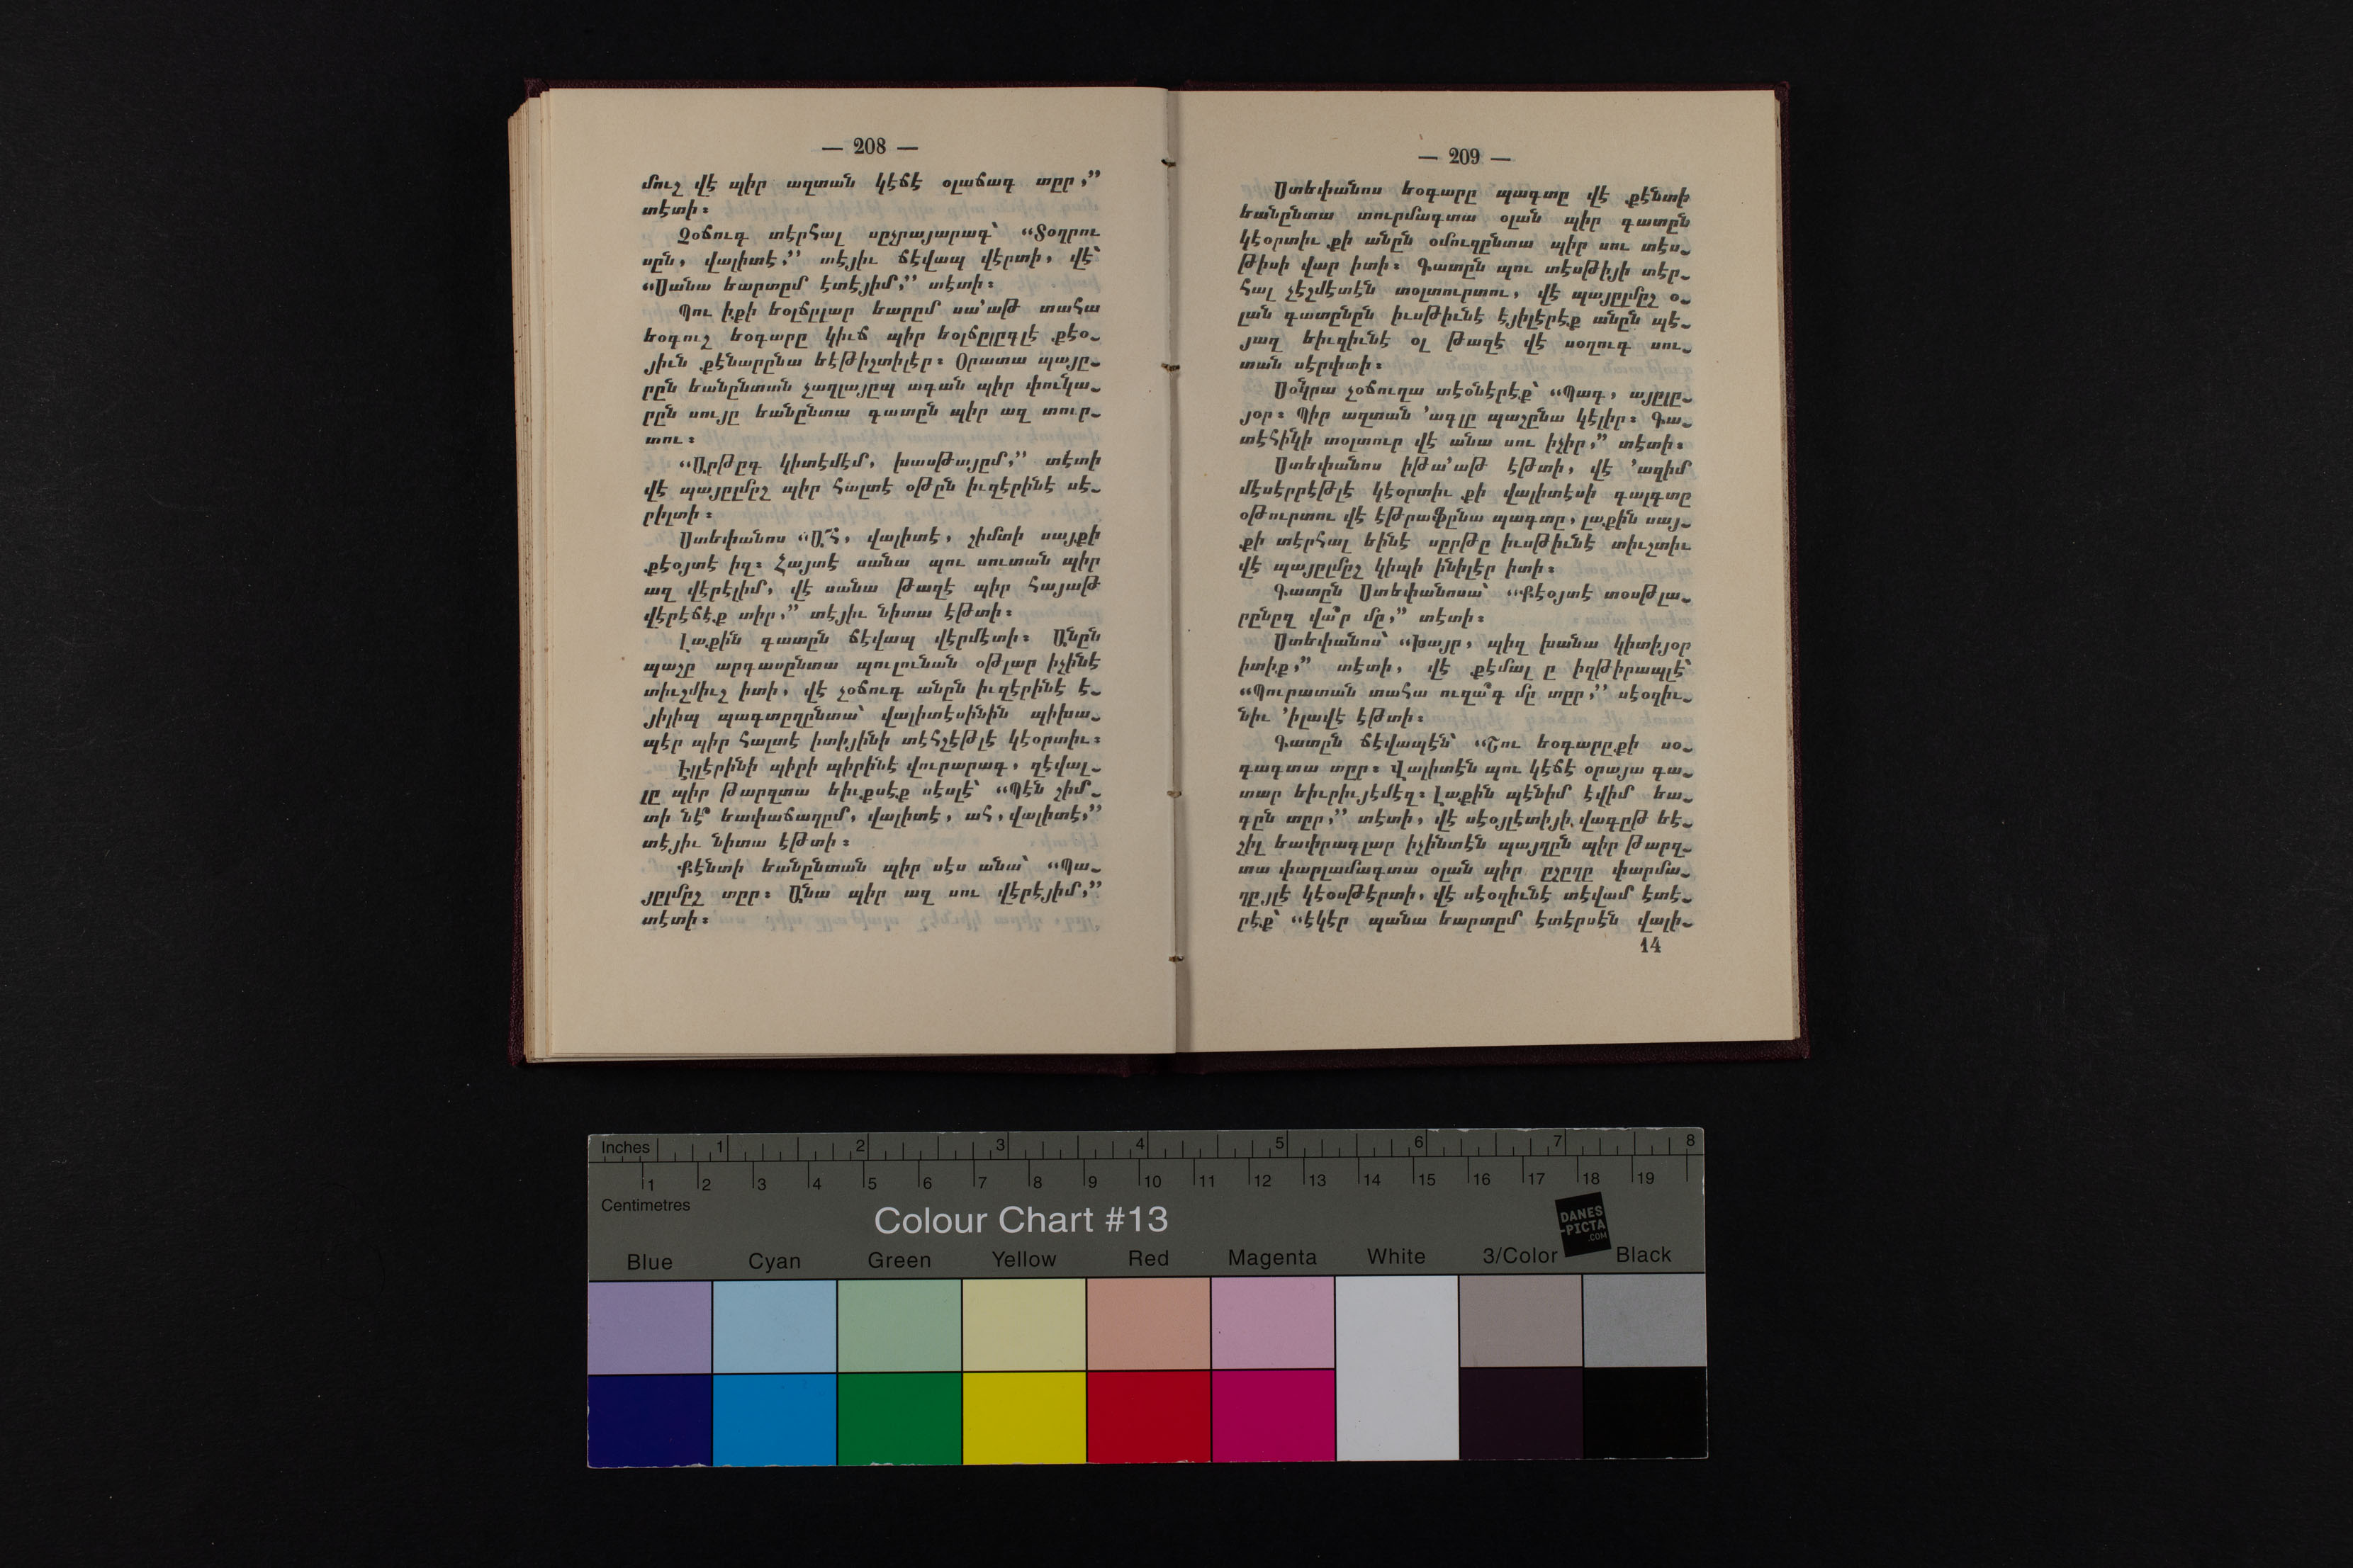 — 208 —
մուշ վէ պիր ազտան կէճէ օլաճագ տըր,”
տէտի։
Չօճուգ տէրհալ սըչրայարագ՝ “Տօղրու
սըն, վալիտէ,” տէյիւ ճէվապ վէրտի, վէ՝
“Սանա եարտըմ էտէյիմ,” տէտի։
Պու իքի եօլճըլար եարըմ սա՚աթ տահա
եօգուշ եօգարը կիւճ պիր եօլճըլըգլէ քէօ֊
յիւն քէնարընա եէթիշտիլէր։ Օրատա պայը֊
րըն եանընտան չաղլայըպ ագան պիր փունա֊
րըն սույը եանընտա գատըն պիր ազ տուր֊
տու։
“Արթըգ կիտէմէմ, խասթայըմ,” տէտի
վէ պայըլմըշ պիր հալտէ օթըն իւզէրինէ սէ֊
րիլտի։
Ստեփանոս “Ա՜հ, վալիտէ, շիմտի սայքի
քէօյտէ իզ։ Հայտէ սանա պու սուտան պիր
ազ վէրէլիմ, վէ սանա թազէ պիր հայաթ
վէրէճէք տիր,” տէյիւ նիտա էթտի։
Լաքին գատըն ճէվապ վէրմէտի։ Անըն
պաշը արգասընտա պուլունան օթլար իչինէ
տիւշմիւշ իտի, վէ չօճուգ անըն իւզէրինէ է֊
յիլիպ պագտըղընտա՝ վալիտէսինին պիխա֊
պէր պիր հալտէ իտիյինի տէհշէթլէ կէօրտիւ։
Էլլէրինի պիրի պիրինէ վուրարագ, զէվալ֊
լը պիր թարզտա եիւքսէք սէսլէ՝ “Պէն շիմ֊
տի նէ՞ եափաճաղըմ, վալիտէ, ահ, վալիտէ,”
տէյիւ նիտա էթտի։
Քէնտի եանընտան պիր սէս անա՝ “Պա֊
յըլմըշ տըր։ Անա պիր ազ սու վէրէյիմ,”
տէտի։
— 209 —
Ստեփանոս եօգարը պագտը վէ քէնտի
եանընտա տուրմագտա օլան պիր գատըն
կէօրտիւ քի անըն օմուզընտա պիր սու տէս֊
թիսի վար իտի։ Գատըն պու տէսթիյի տէր֊
հալ չէշմէտէն տօլտուրտու, վէ պայըլմըշ օ֊
լան գատընըն իւսթիւնէ էյիլէրէք անըն պէ֊
յազ եիւզիւնէ օլ թազէ վէ սօղուգ սու֊
տան սէրփտի։
Սօնրա չօճուղա տէօնէրէք՝ “Պագ, այըլը֊
յօր։ Պիր ազտան ՚ագլը պաշընա կէլիր։ Գա֊
տէհինի տօլտուր վէ անա սու իչիր,” տէտի։
Ստեփանոս իթա՚աթ էթտի, վէ ՚ազիմ
մէսէրրէթլէ կէօրտիւ քի վալիտէսի գալգտը
օթուրտու վէ էթրաֆընա պագտը, լաքին սայ֊
քի տէրհալ եինէ սըրթը իւսթիւնէ տիւշտիւ
վէ պայըլմըշ կիպի ինիլէր իտի։
Գատըն Ստեփանոսա՝ “Քէօյտէ տօսթլա֊
րընըզ վա՞ր մը,” տէտի։
Ստեփանոս՝ “Խայր, պիզ խանա կիտիյօր
իտիք,” տէտի, վէ քէմալ ը իզթիրապլէ՝
“Պուրատան տահա ուզա՞գ մը տըր,” սէօզիւ֊
նիւ ՚իլավէ էթտի։
Գատըն ճէվապէն՝ “Շու եօգարըքի սօ֊
գագտա տըր։ Վալիտէն պու կէճէ օրայա գա֊
տար եիւրիւյէմէզ։ Լաքին պէնիմ էվիմ եա֊
գըն տըր,” տէտի, վէ սէօյլէտիյի վագըթ եէ֊
շիլ եափրագլար իչինտէն պայղըն պիր թարզ֊
տա փարլամագտա օլան պիր ըշըղը փարմա֊
ղըյլէ կէօսթէրտի, վէ սէօզիւնէ տէվամ էտէ֊
րէք՝ “էկէր պանա եարտըմ էտէրսէն վալի֊
14
Inches 1 2 3 4 5 6 7 8
1 2 3 4 5 6 7 8 9 10 11 12 13 14 15 16 17 18 19
Centimetres
Colour Chart #13
DANES
-PICTA
.COM
Blue Cyan Green Yellow Red Magenta White 3/Color Black